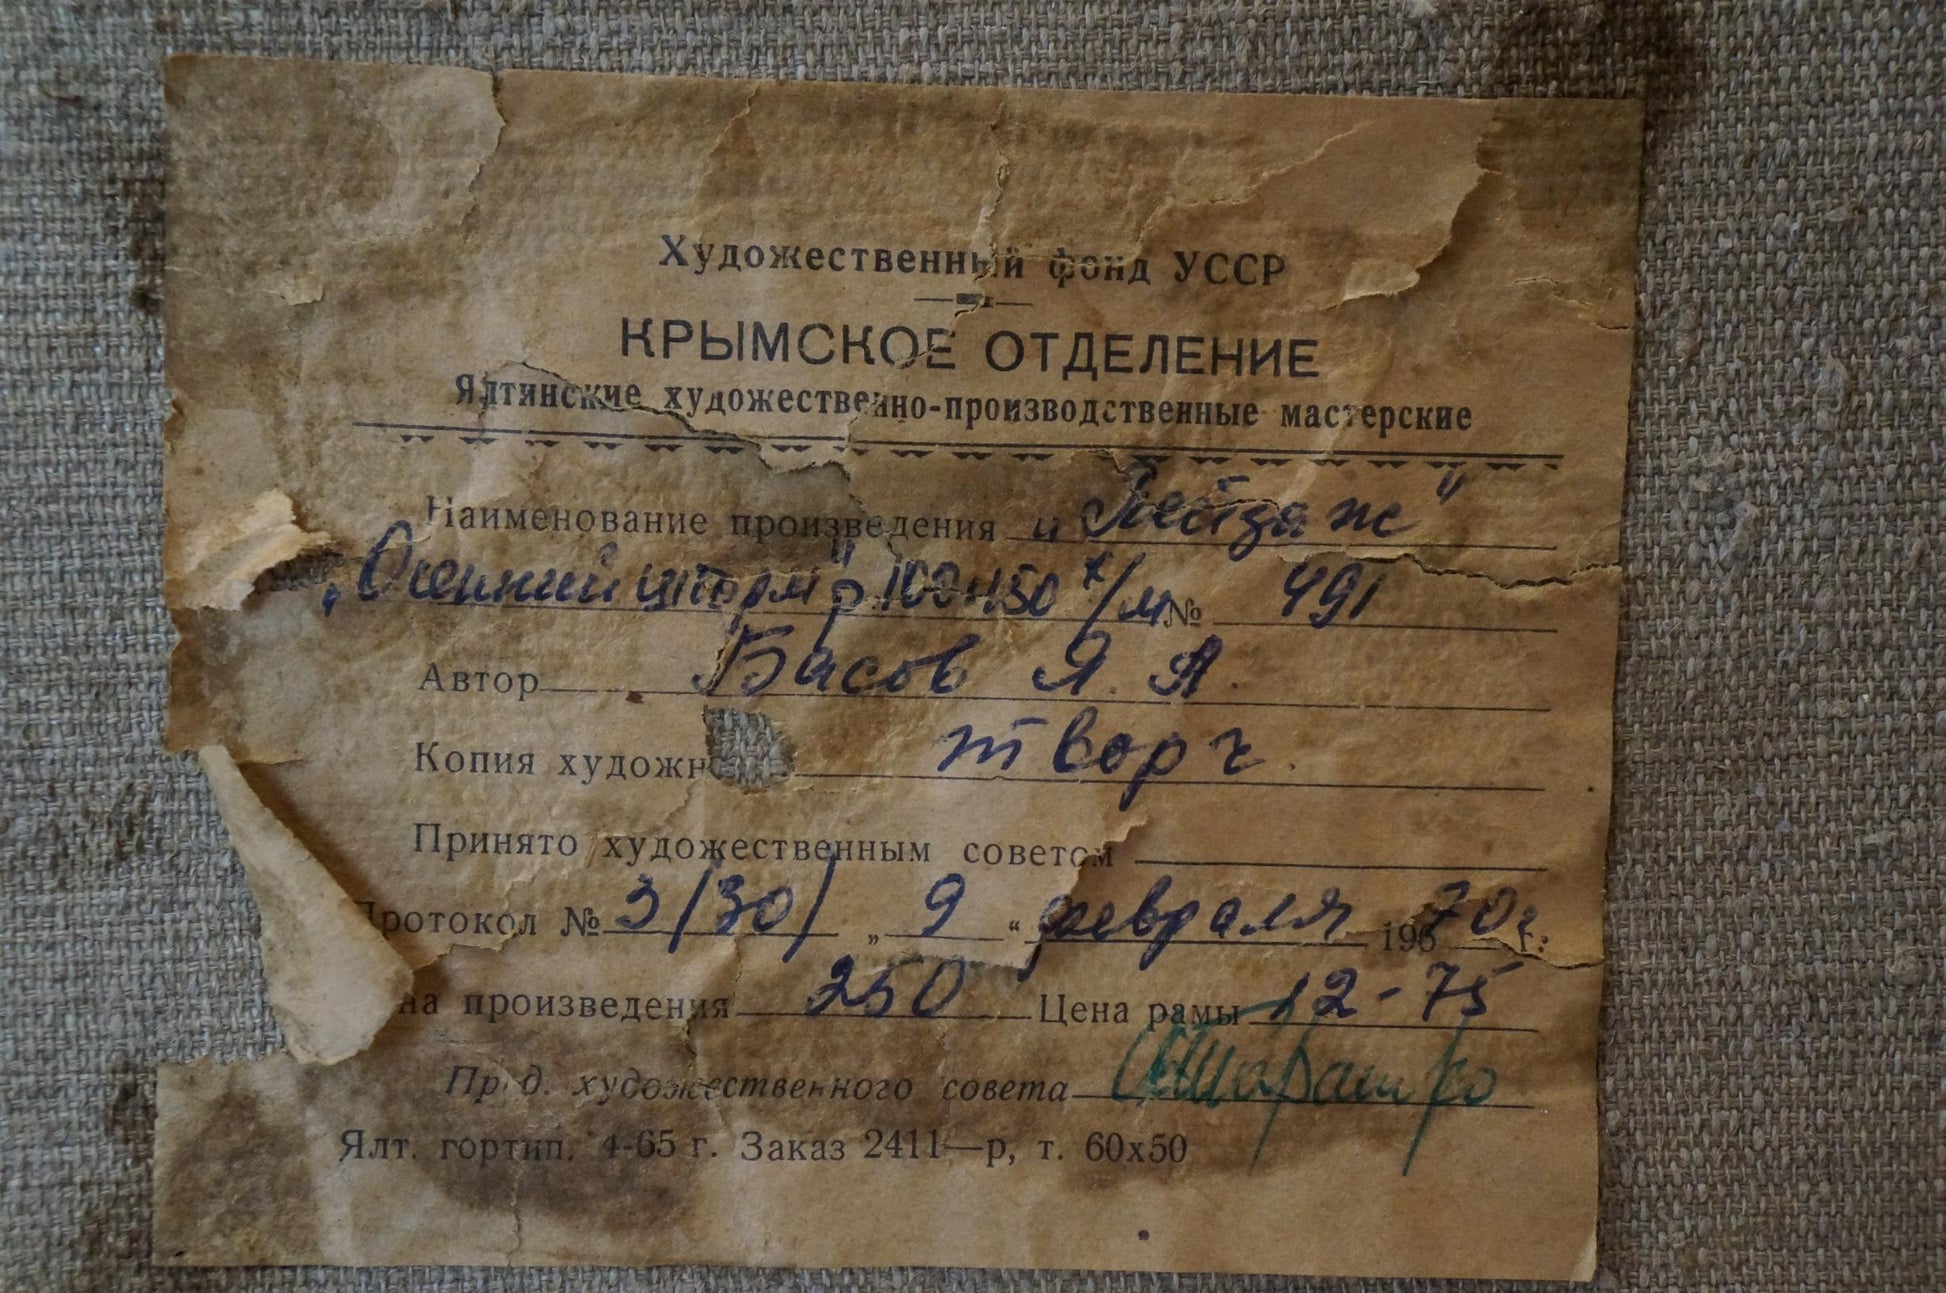 Художественный фонд УССР
КРЫМСКОЕ ОТДЕЛЕНИЕ
Ялтинские художественно-производственные мастерские
Наименование произведения „Пейзаж"
„Осенний шторм" р. 100х150 х/м № 491
Автор Басов Я. А.
Копия художн творч.
Принято художественным советом
Протокол № 3/30/ „ 9 " февраля 1970 г.
на произведения 250 Цена рамы 12-75
Пред. художественного совета
Ялт. гортип. 4-65 г. Заказ 2411—р, т. 60x50